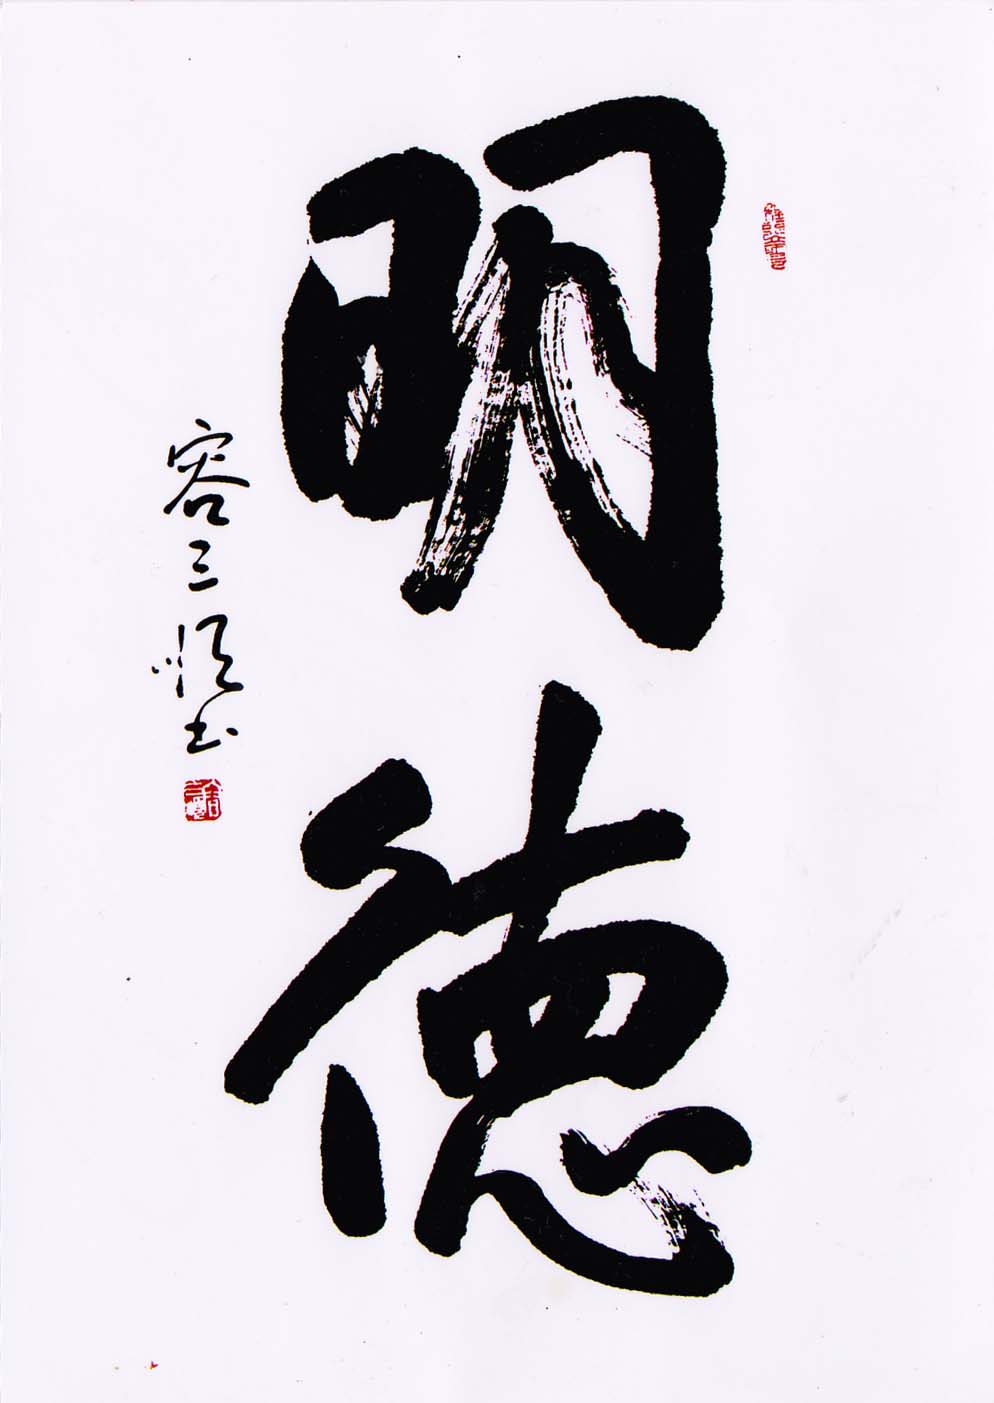 明德
容三順书